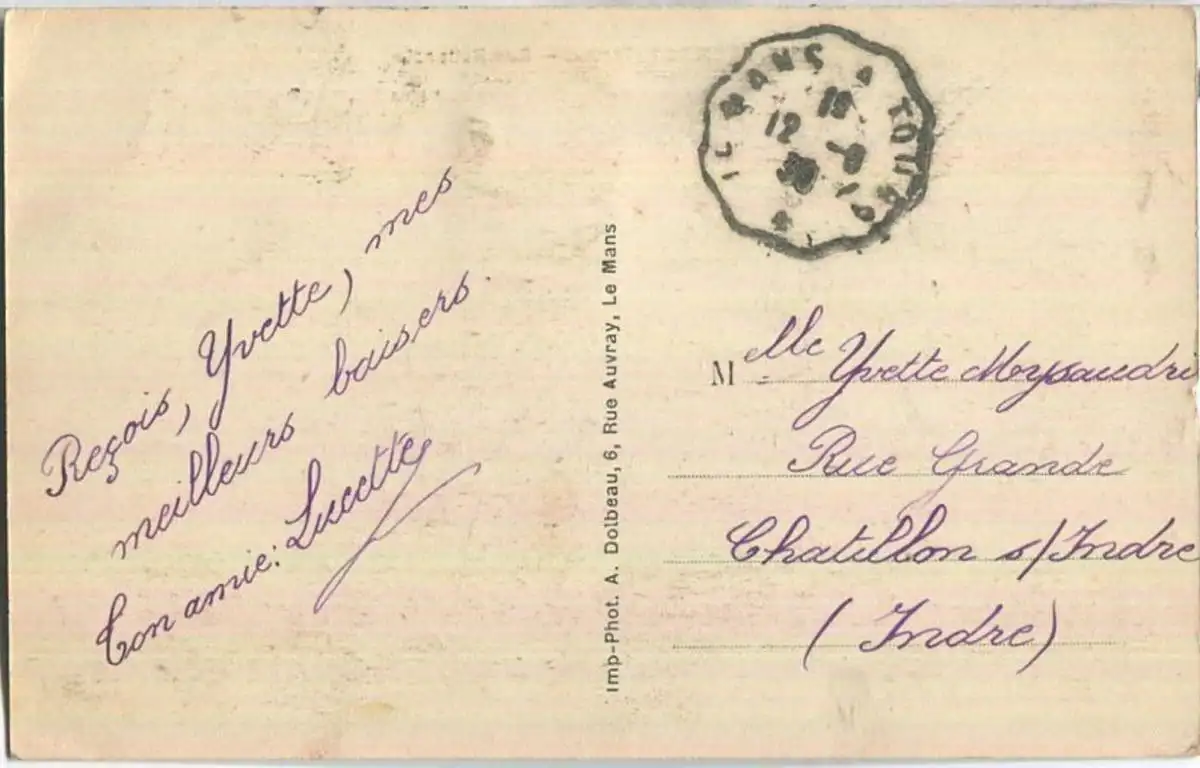 Reçois, Yvette, mes
meilleurs baisers.
Ton amie: Lucette
Imp-Phot. A. Dolbeau, 6, Rue Auvray, Le Mans
LE MANS A TOURS
12 18
-8
38
M elle Yvette
Rue Grande
Chatillon s/Indre
(Indre)